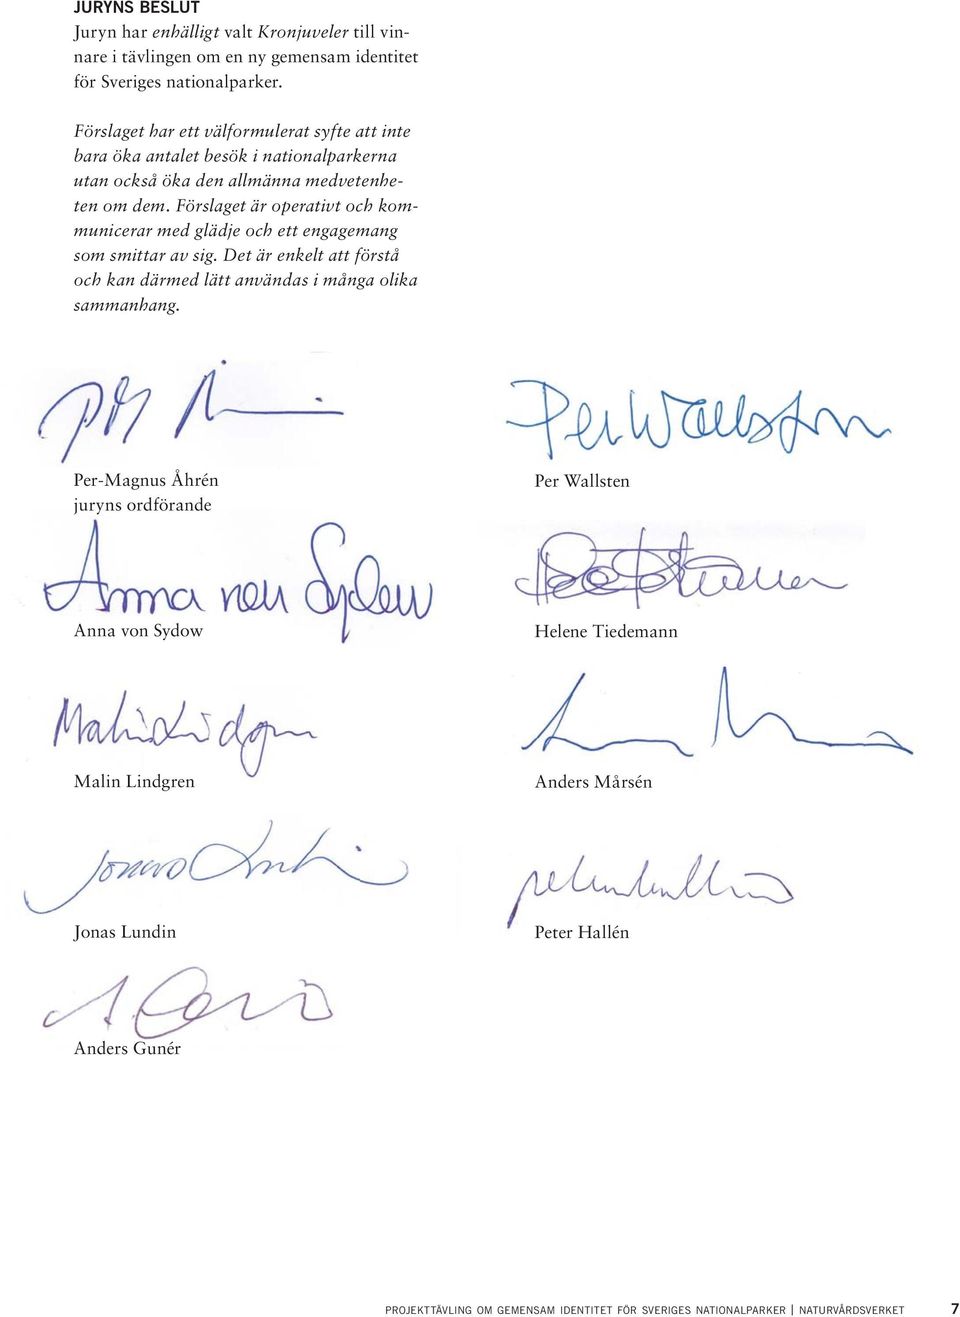 JURYNS BESLUT
Juryn har enhälligt valt Kronjuveler till vin-
nare i tävlingen om en ny gemensam identitet
för Sveriges nationalparker.
Förslaget har ett välformulerat syfte att inte
bara öka antalet besök i nationalparkerna
utan också öka den allmänna medvetenhe-
ten om dem. Förslaget är operativt och kom-
municerar med glädje och ett engagemang
som smittar av sig. Det är enkelt att förstå
och kan därmed lätt användas i många olika
sammanhang.
Per Wallsten
Per-Magnus Åhrén
juryns ordförande
Per Wallsten
Anna von Sydow
Anna von Sydow
Helene Tiedemann
Malin Lindgren
Malin Lindgren
Anders Mårsén
Jonas Lundin
Jonas Lundin
Peter Hallén
Anders Gunér
PROJEKTTÄVLING OM GEMENSAM IDENTITET FÖR SVERIGES NATIONALPARKER | NATURVÅRDSVERKET 7